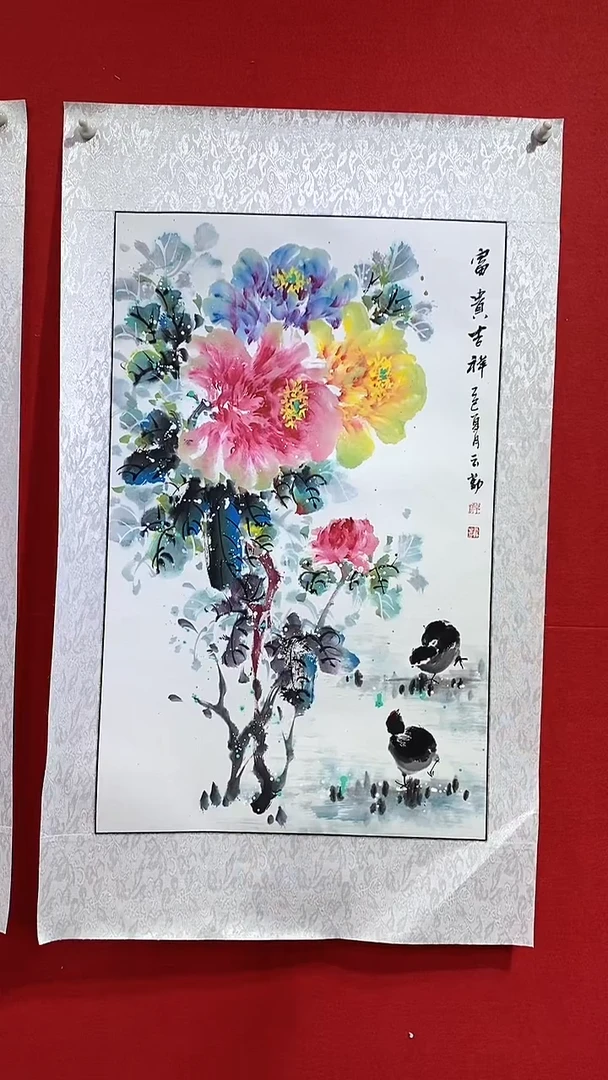 富贵吉祥 乙巳夏月云勤